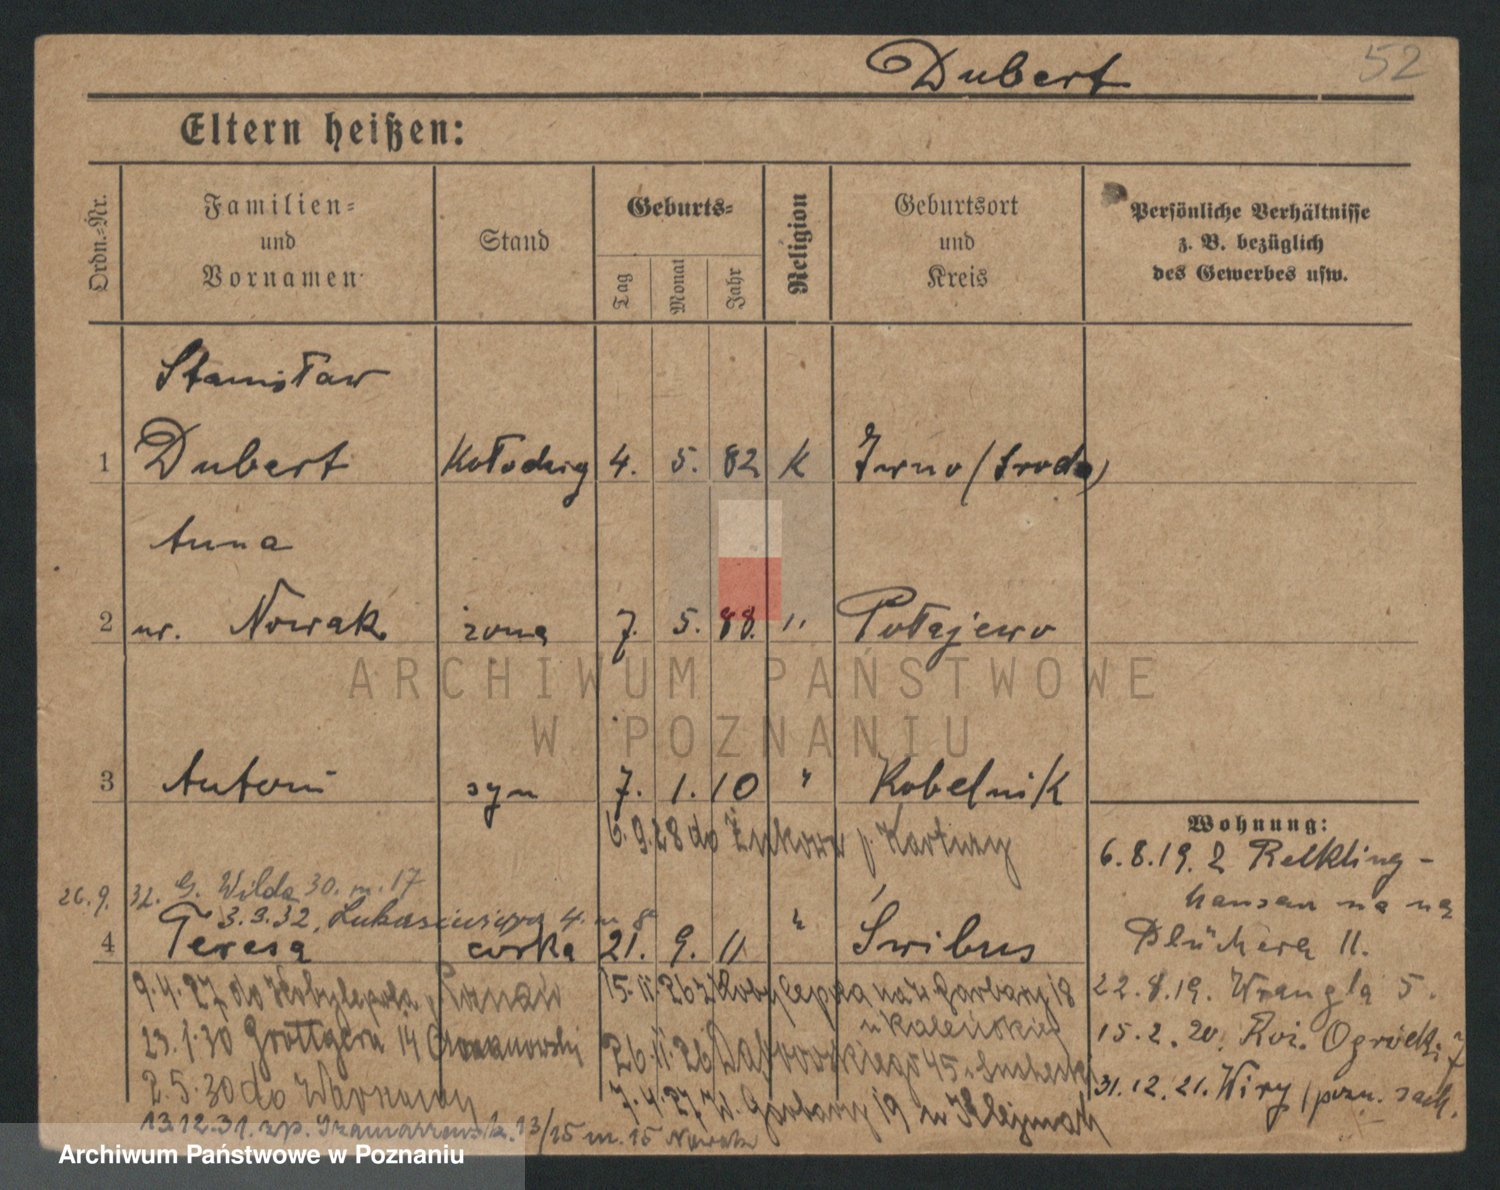 Dubert 52
Eltern heißen:
Ordn.-Nr.
Familien-
und
Vornamen
Stand
Geburts-
Tag
Monat
Jahr
Religion
Geburtsort
und
Kreis
Persönliche Verhältnisse
z. B. bezüglich
des Gewerbes usw.
Stanisław
1 Dubert Kołodziej 4. 5. 82 K (Sroda)
Anna
2 ur. Nowak żona 7. 5. 88. " Połajewo
ARCHIWUM PAŃSTWOWE
W POZNANIU
3 Antoni syn 7. 1. 10 " Kobelnik
6.9.28 do Żukowa p. Kartuzy
Wohnung:
6.8.19. z Relkling-
hausen na
Blüchera 11.
26.9. 32. G. Wilda 30. m. 17
3.9.32. 4. m 8a
4 Teresa corka 21. 9. 11 " Swibus
22.8.19. Wrangla 5.
15.2.20. Ogródki 7
31.12.21. Wiry / pozn. zach.
9.4.27 do Kobylepola, Poznań
23.1.30 Grottgera 14
2.5.30 do Warszawy
13.12.31. 13/15 m. 15 Nowak
15.11.26 z Kobylepola Garbary 18
26.11.26 Dąbrowskiego 45
7.4.27 W. Garbary 19
Archiwum Państwowe w Poznaniu